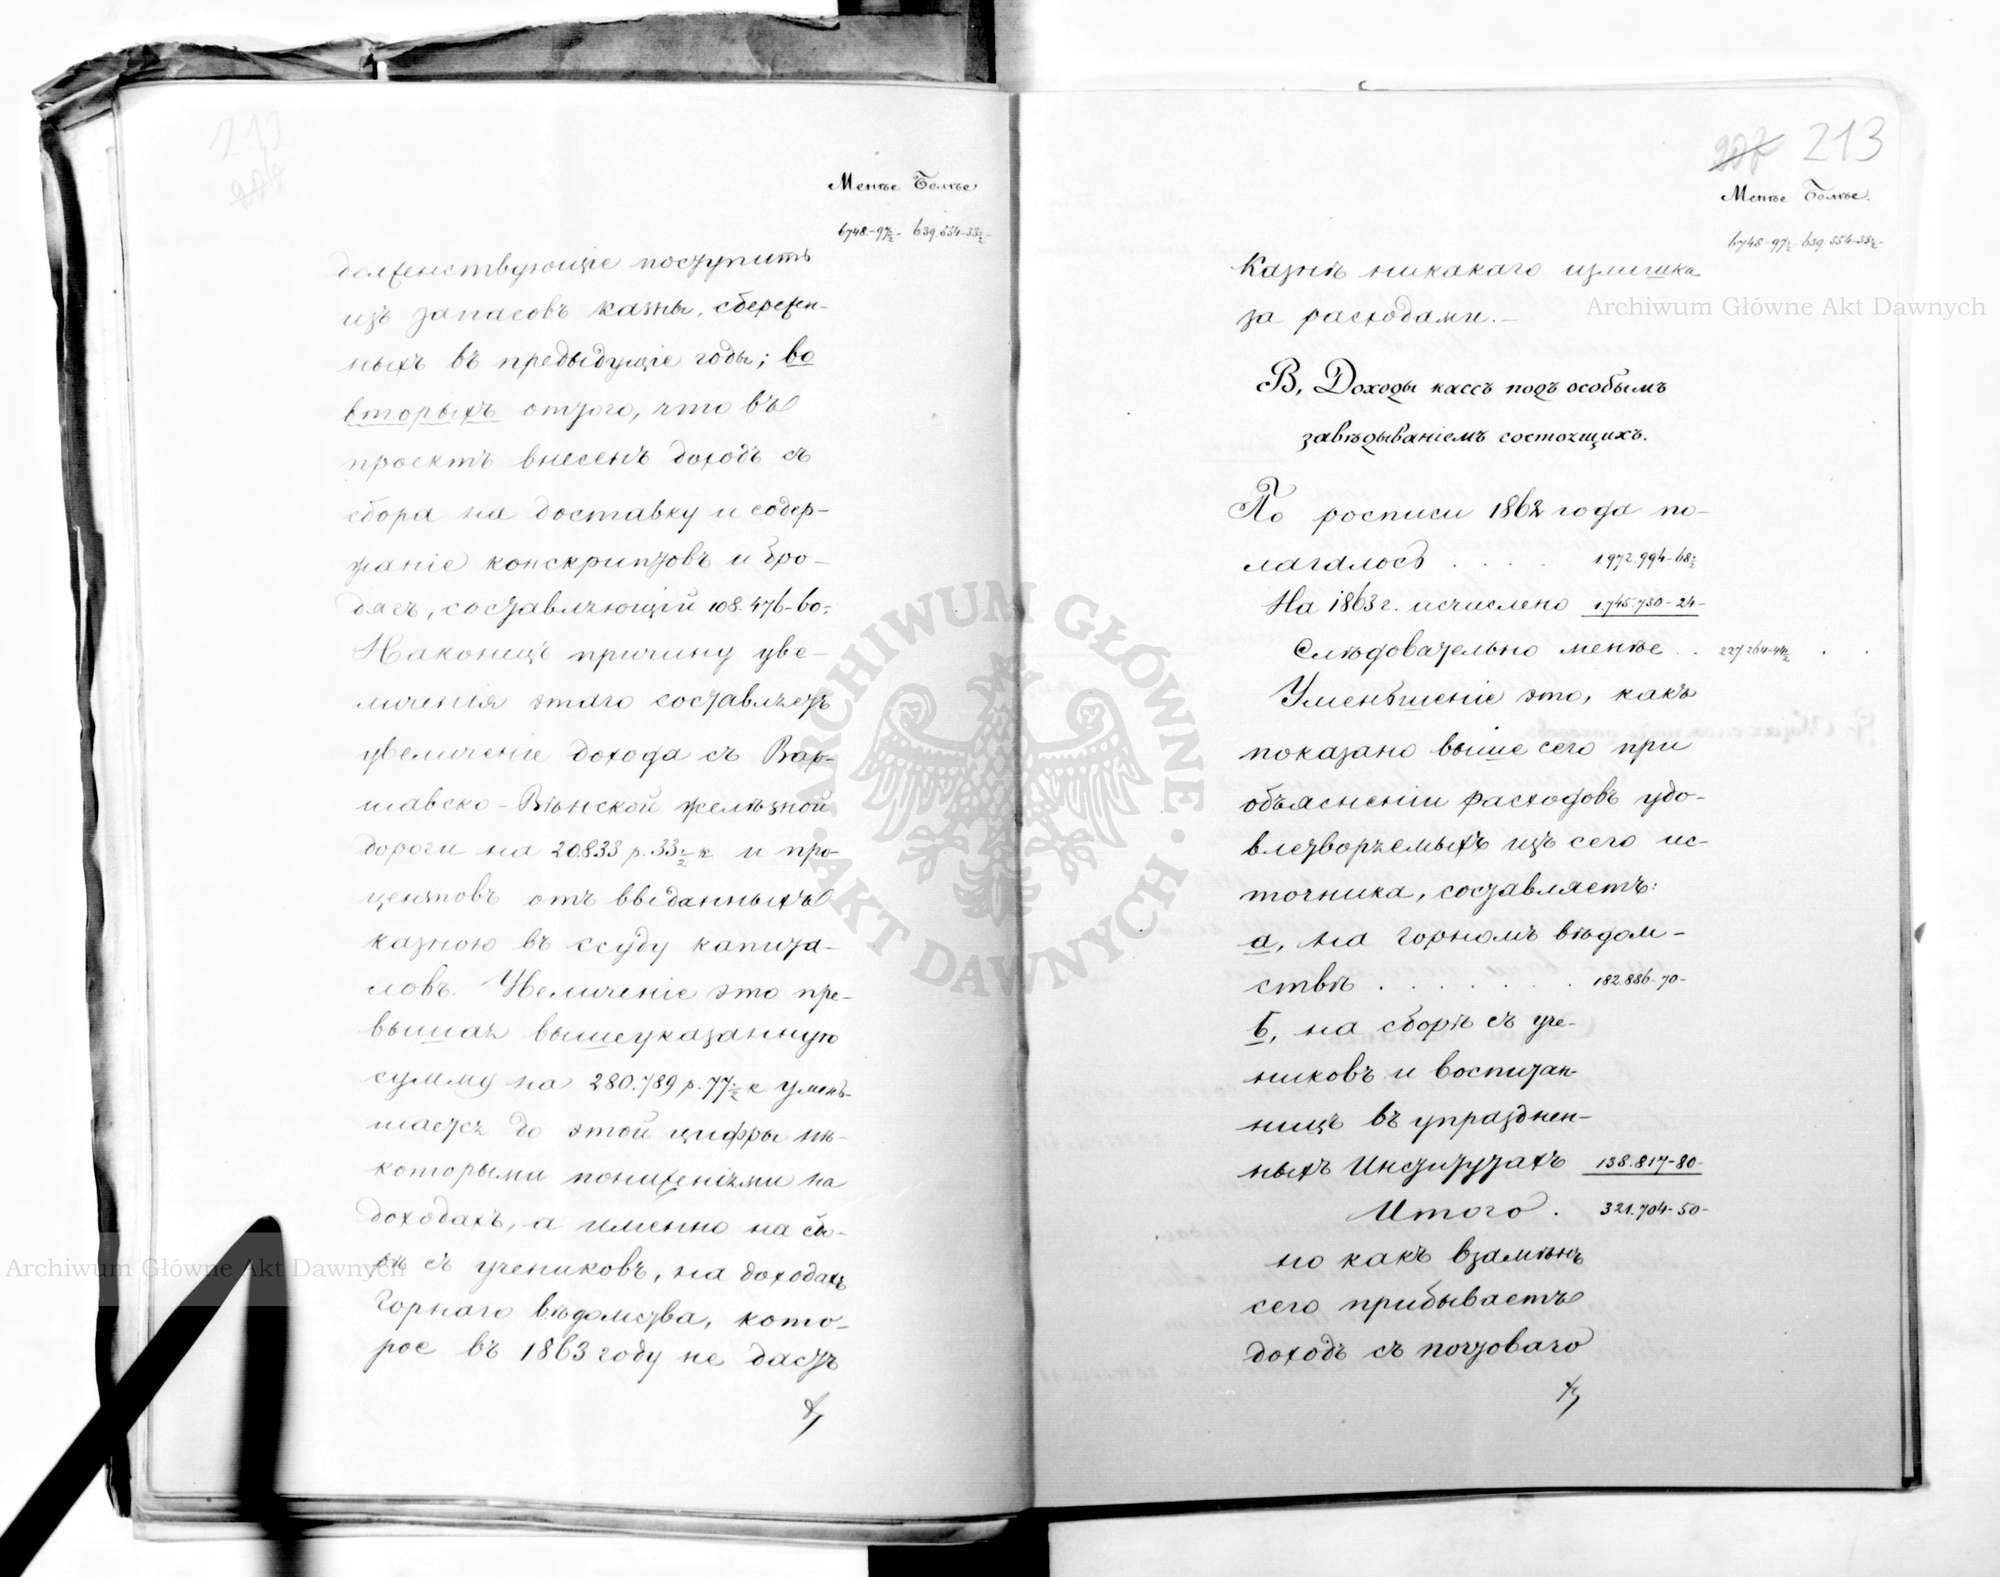 212
Менѣе Болѣе
6748-97½- 639.554-33½-
долженствующіе поступить
изъ запасовъ казны, сбережен-
ныхъ въ предыдущіе годы; во
вторыхъ отъ того, что въ
проектъ внесенъ доходъ съ
сбора на доставку и содер-
жаніе конскриптовъ и бро-
дягъ, составляющій 108.476-60=
Наконецъ причину уве-
личенія этаго составляетъ
увеличеніе дохода съ Вар-
шавско-Вѣнской желѣзной
дороги на 20.833 р. 33½ к и про-
центовъ отъ выданныхъ
казною въ ссуду капита-
ловъ. Увеличеніе это пре-
вышая вышеуказанную
сумму на 280.789 р. 77½ к умень-
шается до этой цифры нѣ-
которыми пониженіями на
доходахъ, а именно на сбо-
рѣ съ учениковъ, на доходахъ
Горнаго вѣдомства, кото-
рое въ 1863 году не дастъ
207 213
Менѣе Болѣе.
6748-97½- 639.554-33½-
Казнѣ никакаго излишка
за расходами.-
В, Доходы кассъ подъ особымъ
завѣдываніемъ состоящихъ.
По росписи 1862 года по-
лагалось . . . . 1.972.994-68½
На 1863 г. исчислено 1.745.730-24-
Слѣдовательно менѣе . . 227264-44½ . .
Уменьшеніе это, какъ
показано выше сего при
объясненіи расходовъ удо-
влетворяемыхъ изъ сего ис-
точника, составляетъ:
а, на Горномъ вѣдом-
ствѣ . . . . . . . 182.886-70-
б, на сборѣ съ уче-
никовъ и воспитан-
ницъ въ упразднен-
ныхъ Институтахъ 138.817-80-
Итого . 321.704-50-
но какъ взамѣнъ
сего прибываетъ
доходъ съ почтоваго
Archiwum Główne Akt Dawnych
Archiwum Główne Akt Dawnych
ARCHIWUM GŁÓWNE · AKT DAWNYCH ·